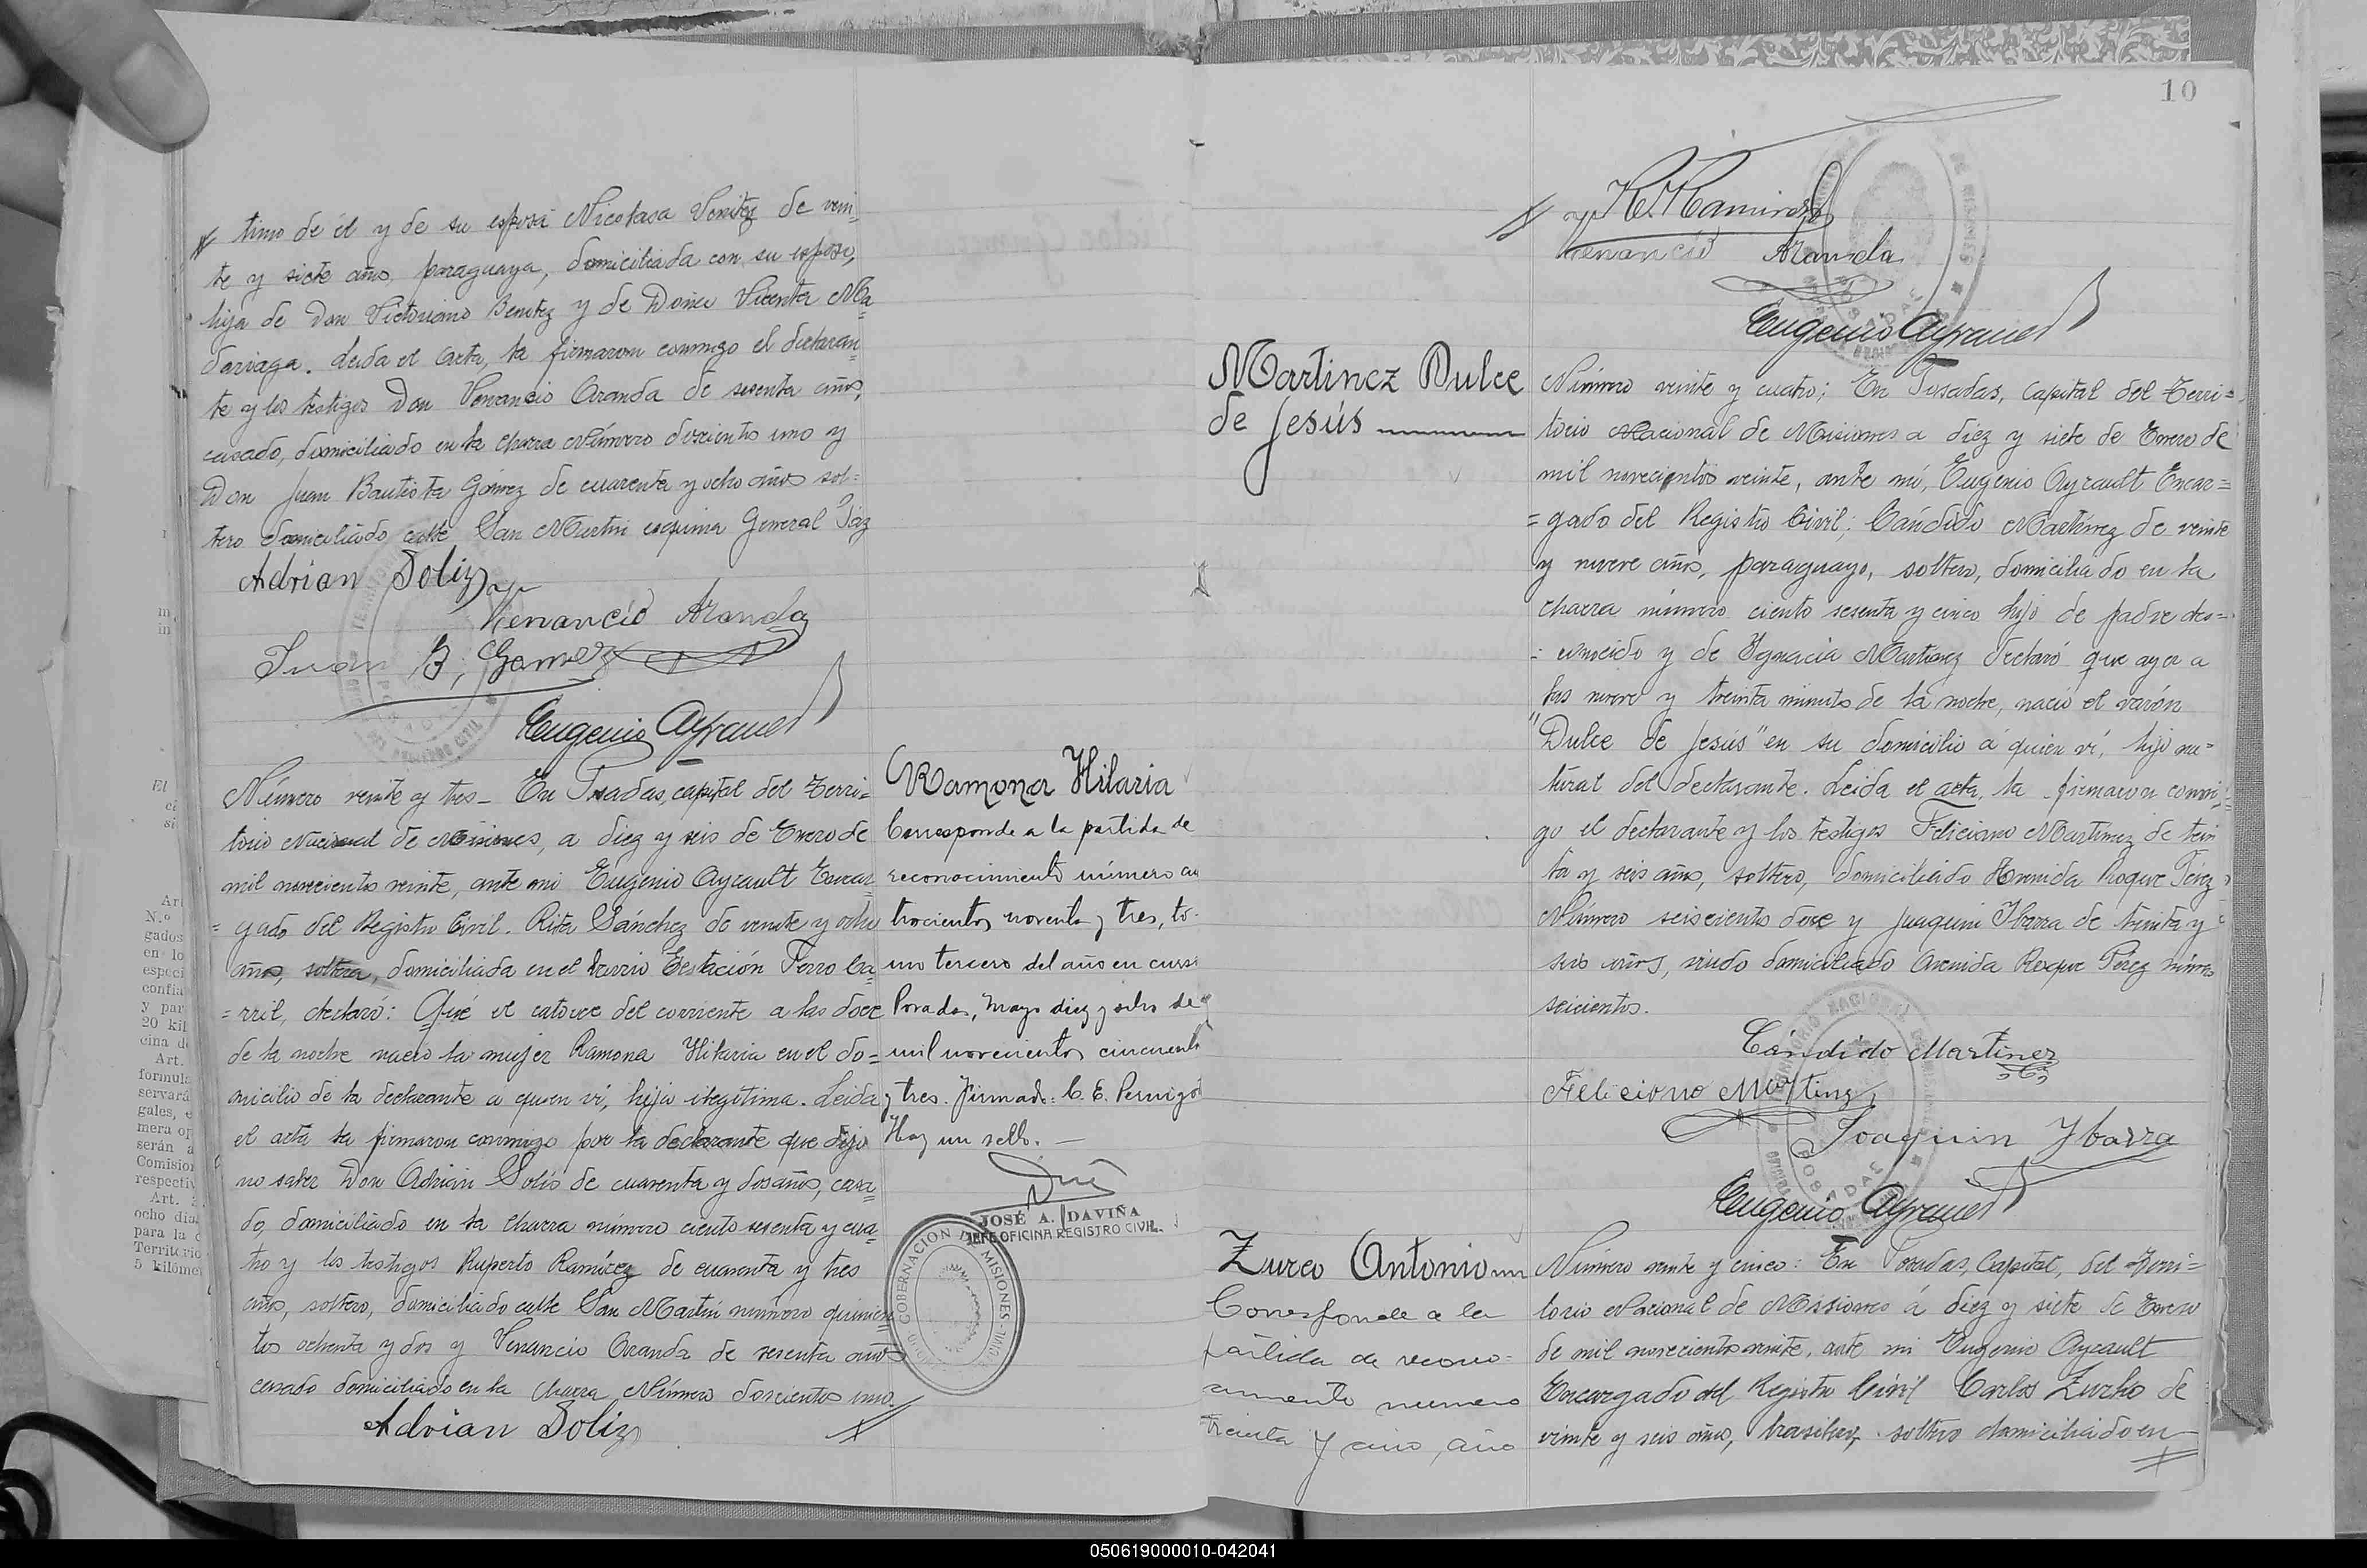 timo de él y de su esposa Nicolasa Venitez de vein-
te y siete años, paraguaya, domiciliada con su esposo,
hija de Don Victoriano Benitez y de Doña Vicenta Ma=
dariaga. Leida el Acta, la firmaron conmigo el declaran=
te y los testigos Don Venancio Aranda de sesenta años,
casado, domiciliado en la Chacra Número doscientos uno y
Don Juan Bautista Gómez de cuarenta y ocho años sol=
tero domiciliado calle San Martin esquina General Paz
Adrian Soliz
Venancio Aranda
Juan B. Gomez
Eugenio Ayrault
Número veinte y tres_ En Posadas, capital del Terri=
torio Nacional de Misiones, a diez y seis de Enero de
mil novecientos veinte, ante mi Eugenio Ayrault Encar
=gado del Registro Civil. Rita Sánchez de veinte y ocho
años, soltera, domiciliada en el barrio Estación Ferro Ca
=rril, declaró: Que el catorce del corriente a las doce
de la noche nació la mujer Ramona Hilaria en el do=
micilio de la declarante a quien ví, hija ilegítima. Leida
el acta la firmaron conmigo por la declarante que dijo
no saber Don Adrián Solís de cuarenta y dos años, casa=
do, domiciliado en la Chacra número ciento sesenta y cua=
tro y los testigos Ruperto Ramírez de cuarenta y tres
años, soltero, domiciliado calle San Martín número quinien=
tos ochenta y dos y Venancio Aranda de sesenta años
casado domiciliado en la Chacra Número doscientos uno.
Adrian Soliz
Ramona Hilaria
Corresponde a la partida de
reconocimiento número cu
trocientos noventa y tres, to-
mo tercero del año en curso
Posadas, Mayo diez y ocho de
mil novecientos cincuenta
y tres. Firmado: C. E. Pernigo
Hay un sello. —
JOSÉ A. DAVIÑA
JEFE OFICINA REGISTRO CIVIL
GOBERNACION DE MISIONES
10
R. Ramirez
Venancio Aranda
Eugenio Ayrault
Martinez Dulce
de Jesús
Número veinte y cuatro; En Posadas, Capital del Terri=
torio Nacional de Misiones a diez y siete de Enero de
mil novecientos veinte, ante mí, Eugenio Ayrault Encar=
=gado del Registro Civil; Cándido Martínez de veinte
y nueve años, paraguayo, soltero, domiciliado en la
charra número ciento sesenta y cinco hijo de padre des=
=conocido y de Ygnacia Martinez declaró que ayer a
las nueve y treinta minutos de la noche, nació el varón
"Dulce de Jesús" en su domicilio á quien ví, hijo na=
tural del declarante. Leida el acta, la firmaron conmi=
go el declarante y los testigos Feliciano Martínez de trein
ta y seis años, soltero, domiciliado Avenida Roque Pérez
Número seiscientos doce y Juaquin Ybarra de treinta y
seis años, viudo domiciliado Avenida Roque Pérez número
seicientos.
Cándido Martinez
Feliciano Martinez
Joaquin Ybarra
Eugenio Ayrault
POSADAS
Zurco Antonio
Corresponde a la
partida de recono=
cimiento numero
treinta y cinco, año
Número veinte y cinco: En Posadas, Capital, del Terri=
torio Nacional de Misiones á diez y siete de Enero
de mil novecientos veinte, ante mi Eugenio Ayrault
Encargado del Registro Civil Carlos Zurko de
veinte y seis años, brasilero, soltero domiciliado en
El
Art.
N.º
gados
en lo
especi
confia
y par
20 kil
cina d
Art.
formula
servará
gales, e
mera op
serán a
Comision
respectiv
Art.
ocho dias
para la
Territorio
5 kilóme
050619000010-042041